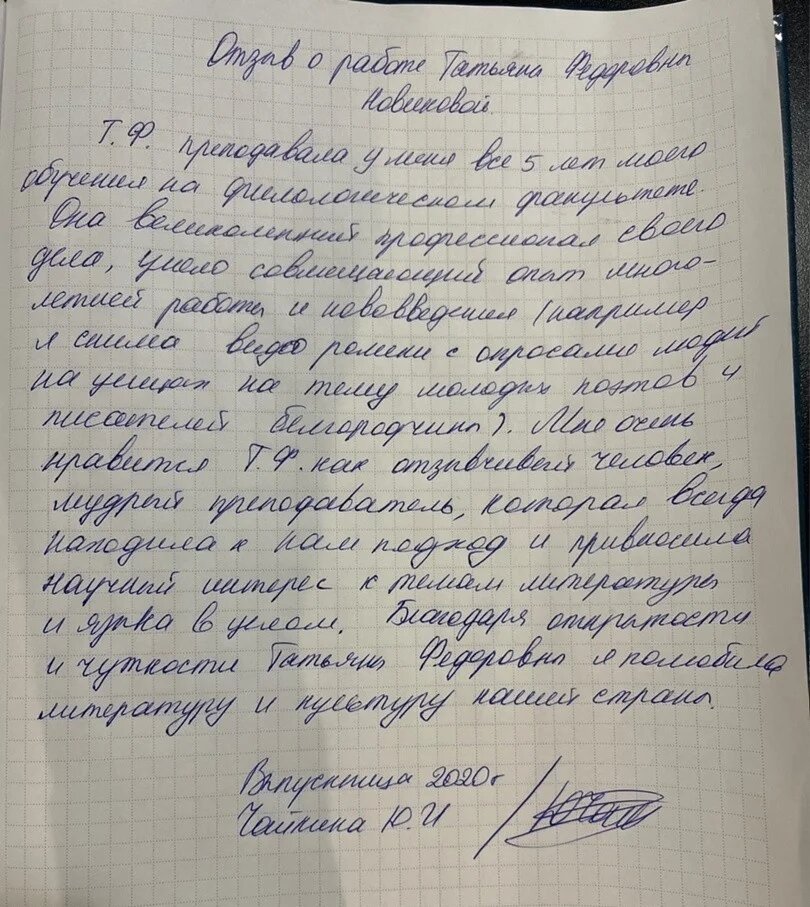 Отзыв о работе Татьяны Федоровны
Новиковой.
Т.Ф. преподавала у меня все 5 лет моего
обучения на филологическом факультете.
Она великолепный профессионал своего
дела, умело совмещающий опыт много-
летней работы и нововведения (например
я снима видео ролики с опросами людей
на улицах на тему молодых поэтов и
писателей белгородчины). Мне очень
нравится Т.Ф. как отзывчивый человек,
мудрый преподаватель, которая всегда
находила к нам подход и привносила
научный интерес к темам литературы
и языка в целом. Благодаря открытости
и чуткости Татьяны Федоровны я полюбила
литературу и культуру нашей страны.
Выпускница 2020г
Чайкина Ю.И /